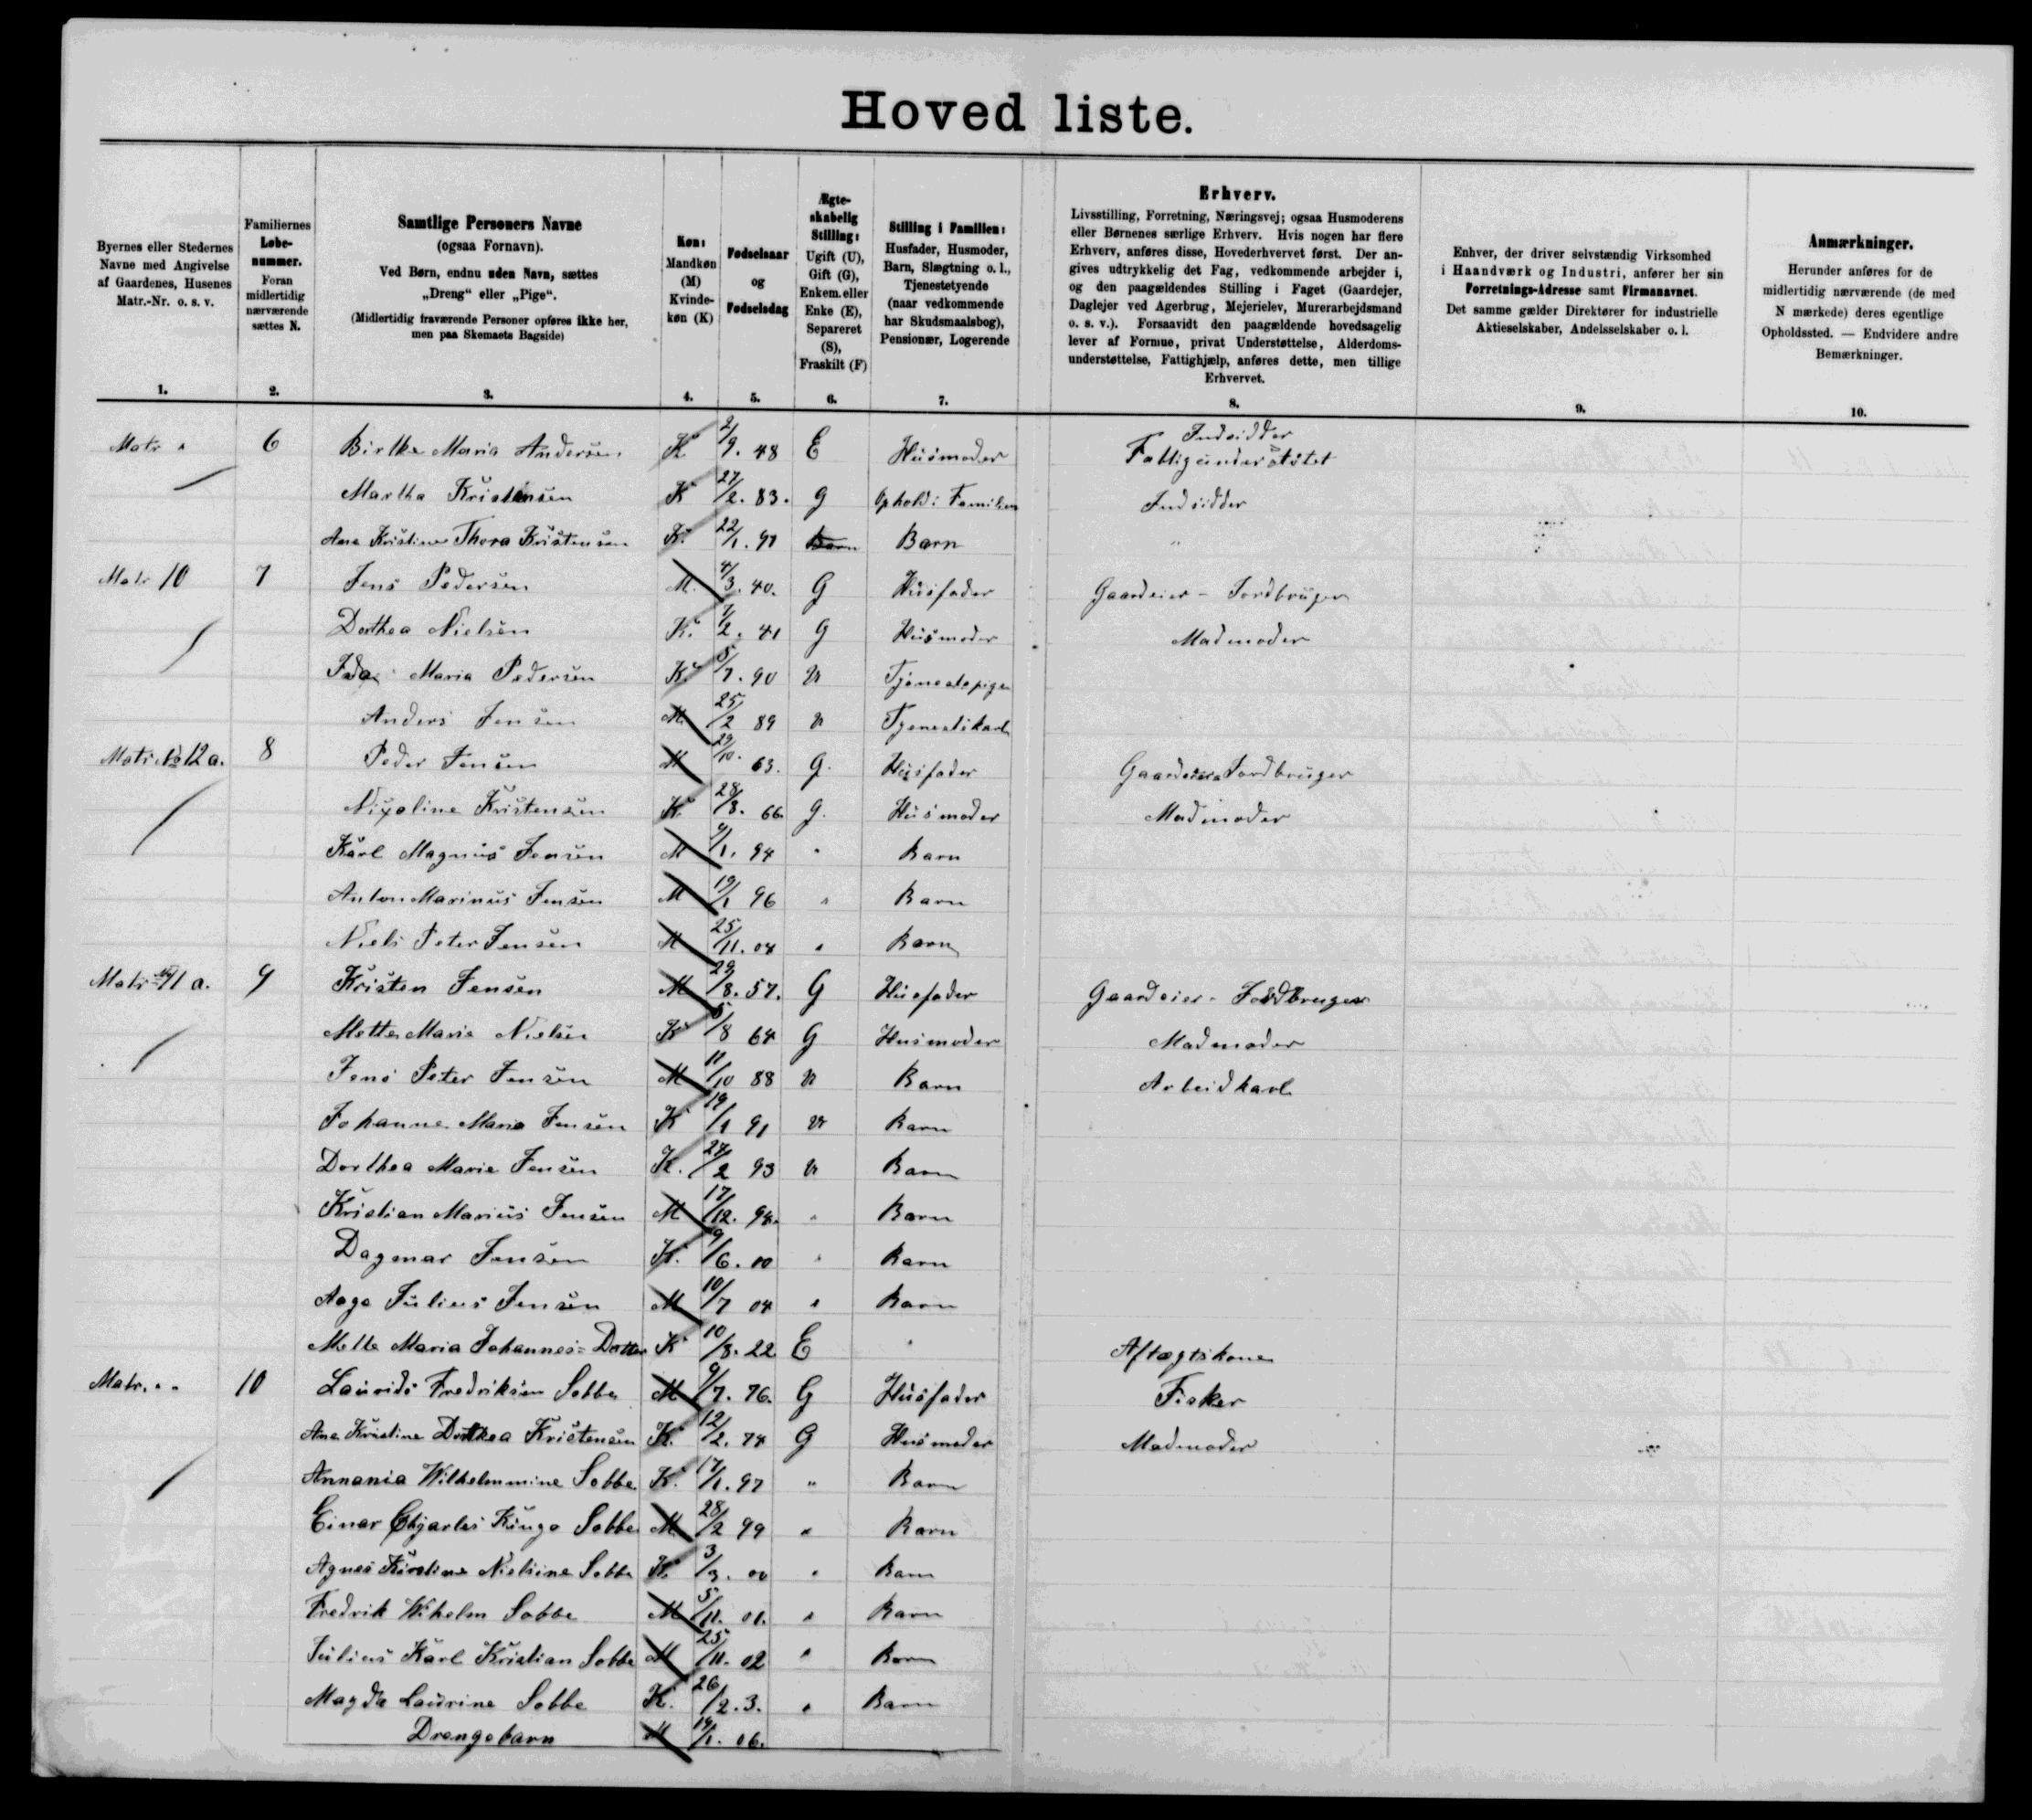 Hoved liste.
Byernes eller Stedernes
Navne med Angivelse
af Gaardenes, Husenes
Matr.-Nr. o. s. v.
1.
Familiernes
Løbe-
nummer.
Foran
midlertidig
nærværende
sættes N.
2.
Samtlige Personers Navne
(ogsaa Fornavn).
Ved Børn, endnu uden Navn, sættes
„Dreng" eller „Pige".
(Midlertidig fraværende Personer opføres ikke her,
men paa Skemaets Bagside)
3.
Køn:
Mandkøn
(M)
Kvinde-
køn (K)
4.
Fødselsaar
og
Fødselsdag
5.
Ægte-
skabelig
Stilling:
Ugift (U),
Gift (G),
Enkem. eller
Enke (E),
Separeret
(S),
Fraskilt (F)
6.
Stilling i Familien:
Husfader, Husmoder,
Barn, Slægtning o. l.,
Tjenestetyende
(naar vedkommende
har Skudsmaalsbog),
Pensionær, Logerende
7.
Erhverv.
Livsstilling, Forretning, Næringsvej; ogsaa Husmoderens
eller Børnenes særlige Erhverv. Hvis nogen har flere
Erhverv, anføres disse, Hovederhvervet først. Der an-
gives udtrykkelig det Fag, vedkommende arbejder i,
og den paagældendes Stilling i Faget (Gaardejer,
Daglejer ved Agerbrug, Mejerielev, Murerarbejdsmand
o. s. v.). Forsaavidt den paagældende hovedsagelig
lever af Formue, privat Understøttelse, Alderdoms-
understøttelse, Fattighjælp, anføres dette, men tillige
Erhvervet.
8.
Enhver, der driver selvstændig Virksomhed
i Haandværk og Industri, anfører her sin
Forretnings-Adresse samt Firmanavnet.
Det samme gælder Direktører for industrielle
Aktieselskaber, Andelsselskaber o. l.
9.
Anmærkninger.
Herunder anføres for de
midlertidig nærværende (de med
N mærkede) deres egentlige
Opholdssted. — Endvidere andre
Bemærkninger.
10.
Indsidder
Matr " 6 Birthe Maria Andersen K 2/9. 48 E Husmoder Fattigunderstøtet
Martha Kristensen K 27/2. 83. G Ophold i Familien Indsidder
Ane Kristine Thora Kristensen K. 22/1. 91 Barn Barn "
Matr 10 7 Jens Pedersen M. 4/3. 40. G Husfader Gaardeier - Jordbruger
Dorthea Nielsen K. 7/2. 41 G Husmoder Madmoder
Ida Maria Pedersen K. 5/7. 90 U Tjenestepige
Anders Jensen M. 25/2 89 U Tjenestekarl
Matr No 12 a. 8 Peder Jensen M 29/10. 63. G. Husfader Gaardeier Jordbruger
Nixoline Kristensen K. 28/8. 66. G. Husmoder Madmoder
Karl Magnus Jensen M 9/1. 94 " Barn
Anton Marinus Jensen M 19/1 96 " Barn
Niels Peter Jensen M 25/11. 04 " Barn
Matr No 11 a. 9 Kristen Jensen M 29/8. 57. G Husfader Gaardeier - Jordbruger
Mette Marie Nielsen K 5/8 64 G Husmoder Madmoder
Jens Peter Jensen M 11/10 88 U Barn Arbeidkarl
Johanne Maria Jensen K 19/1 91 U Barn
Dorthea Marie Jensen K. 27/2 93 U Barn
Kristian Marius Jensen M 17/12. 94. " Barn
Dagmar Jensen K. 9/6. 00 " Barn
Aage Julius Jensen M 10/7 04 " Barn
Mette Maria Johannes=Datter K 10/8. 22 E " Aftægtskone
Matr. " " 10 Laurids Fredriksen Sobbe M 9/7. 76. G Husfader Fisker
Ane Kristine Dorthea Kristensen K. 12/2. 74 G Husmoder Madmoder
Annania Wilhelmmine Sobbe K. 17/1. 97 " Barn
Einar Chjarles Kingo Sobbe M 28/2 99 " Barn
Agnes Kirstine Nielsine Sobbe K. 3/3. 00 " Barn
Fredrik Wihelm Sobbe M 5/11. 01. " Barn
Julius Karl Kristian Sobbe M 25/11. 02 " Barn
Magda Laurine Sobbe K. 26/2. 3. " Barn
Drengebarn M 19/1. 06.